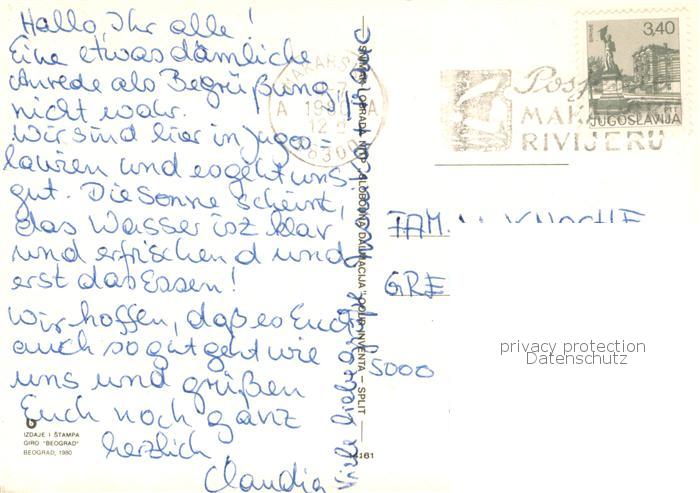 Hallo, Ihr alle!
Eine etwas dämliche
Anrede als Begrüßung
nicht wahr.
Wir sind hier in Jugos=
lawien und es geht uns
gut. Die Sonne scheint,
das Wasser ist klar
und erfrischend und
erst das Essen!
Wir hoffen, daß es Euch
auch so gut geht wie
uns und grüßen
Euch noch ganz
herzlich
Claudia
Viele liebe Grüße
IZDAJE I ŠTAMPA
GIRO "BEOGRAD"
BEOGRAD, 1980
NIP „SLOBODNA DALMACIJA" OOUR INVENTA — SPLIT
14161
MAKARSKA
A A
3,40
JUGOSLAVIJA
MAK
RIVIJERU
FAM.
GRE
5000
privacy protection
Datenschutz